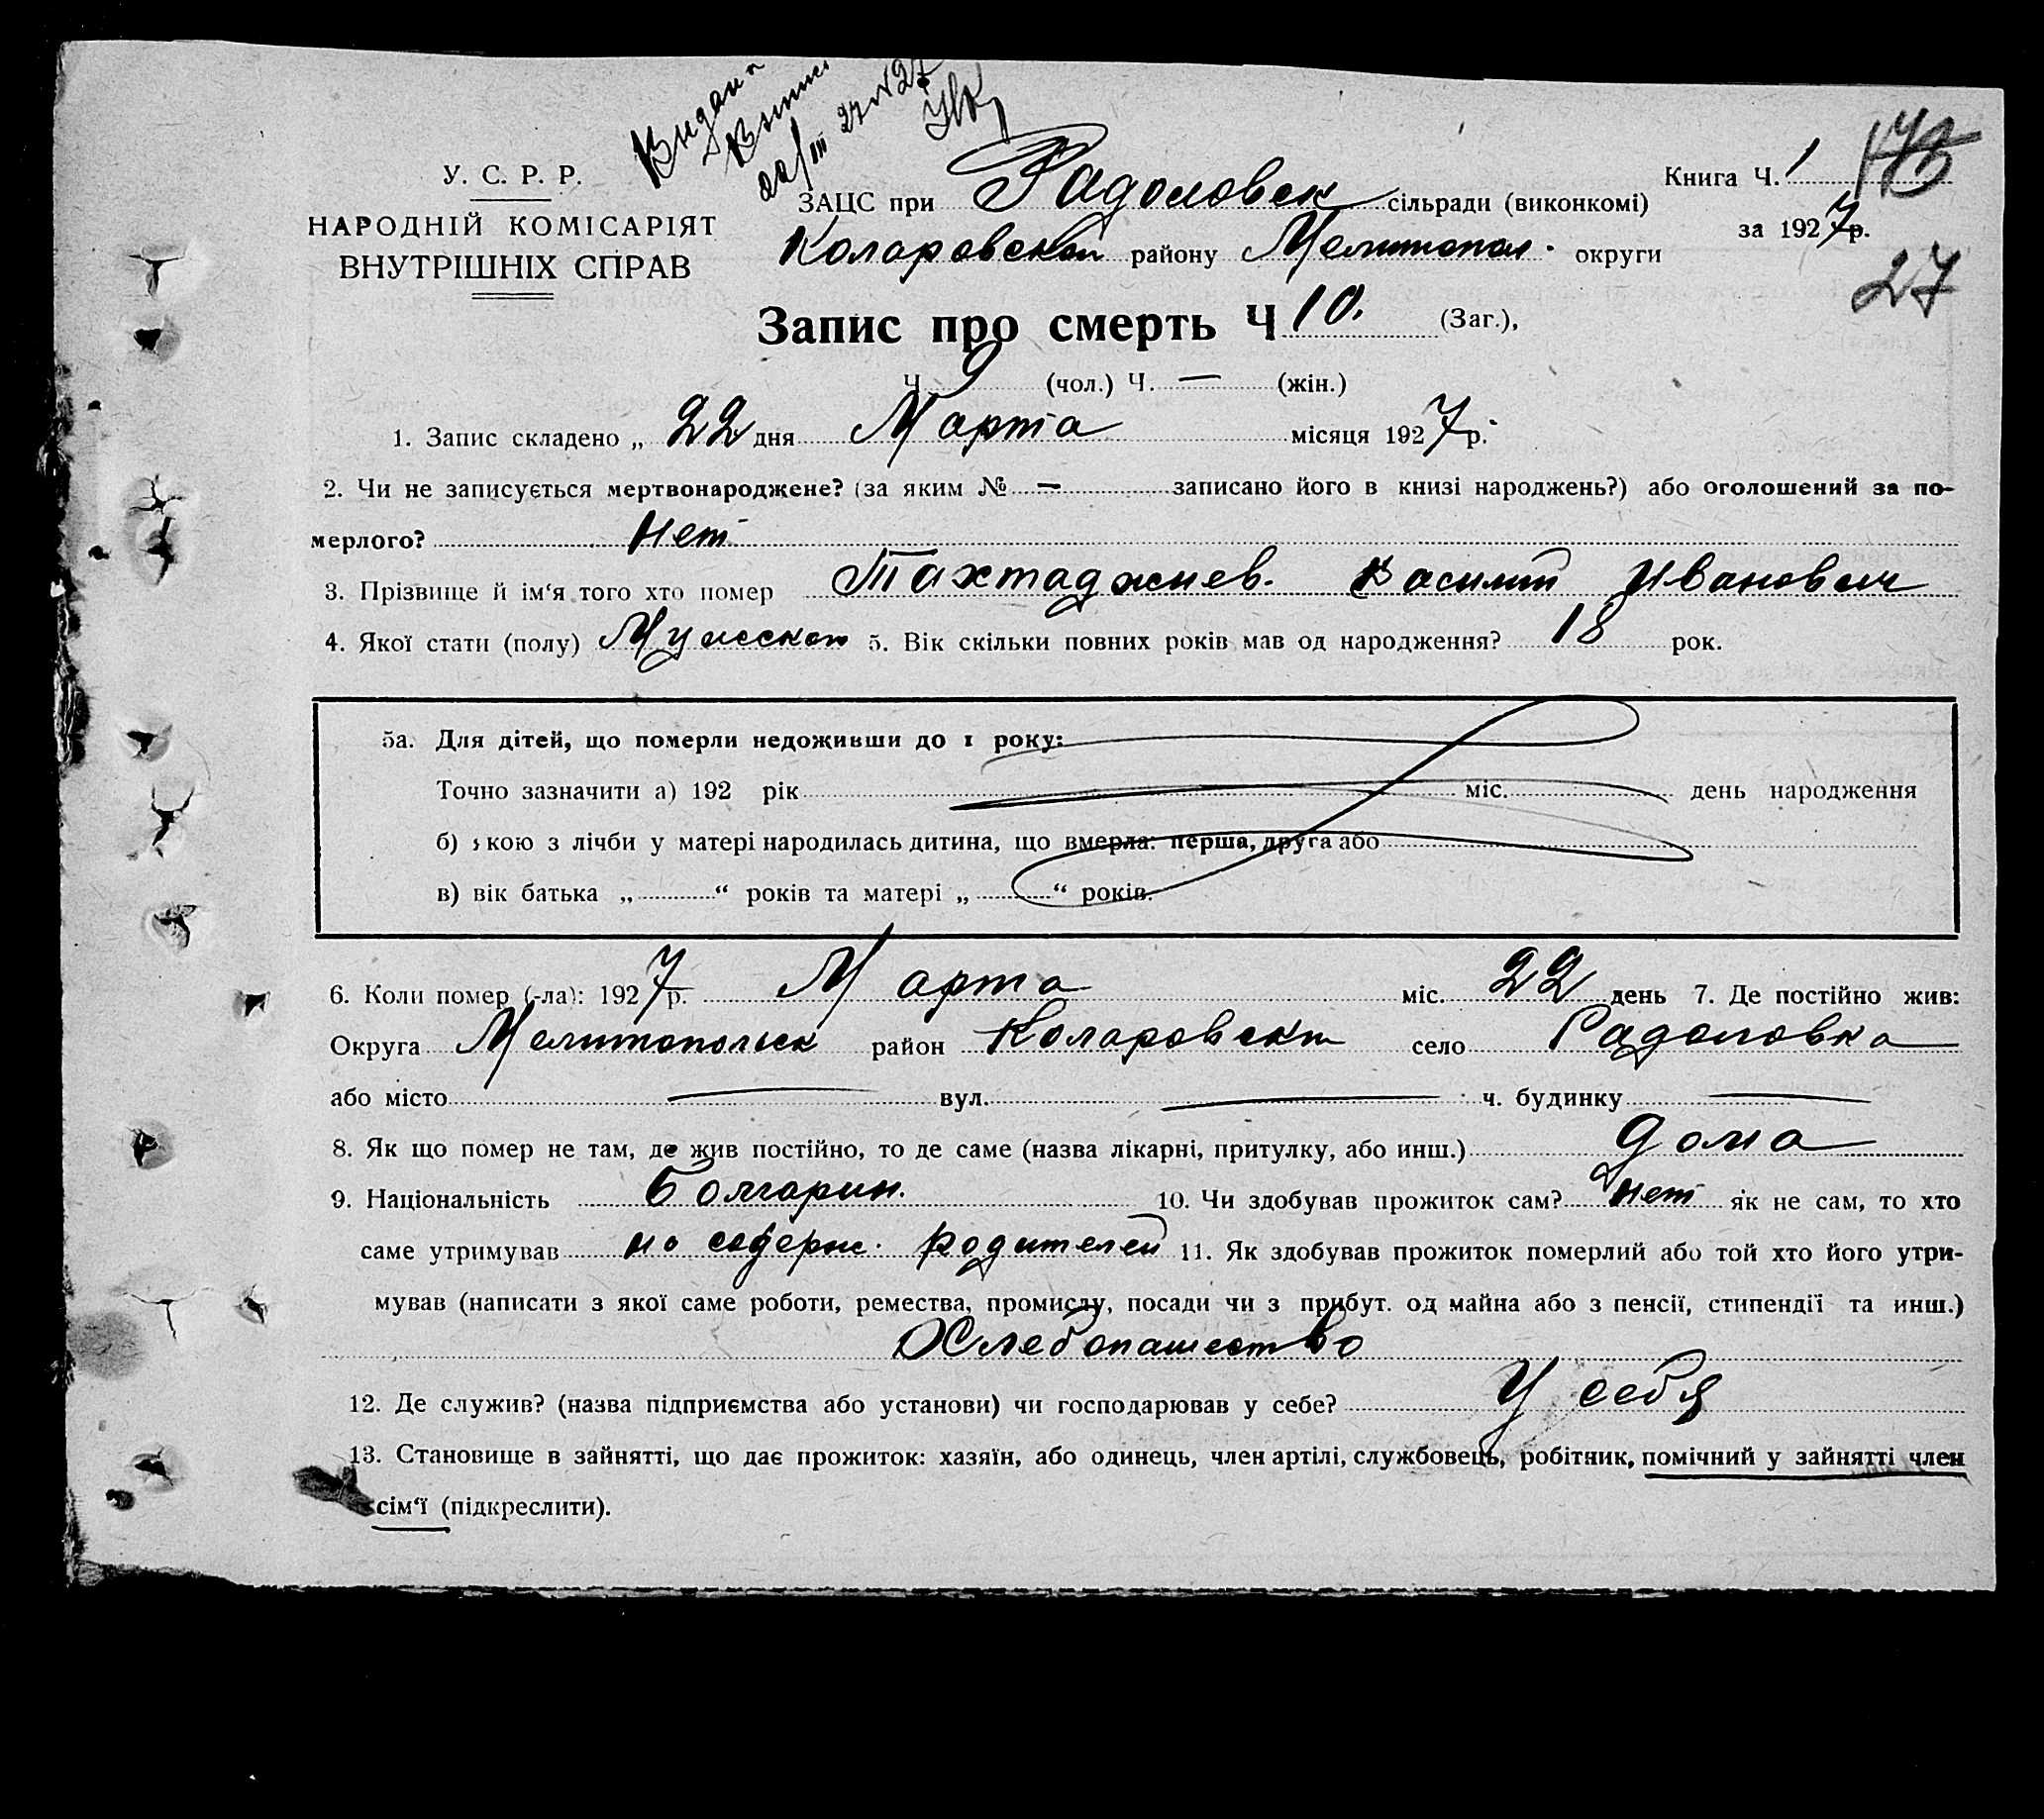 Выдана
Выпис
22/III 27 N 27
Книга Ч. 1
У. С. Р. Р.
ЗАЦС при Радоловск сільради (виконкомі)
за 1927 р.
НАРОДНІЙ КОМІСАРІЯТ
ВНУТРІШНІХ СПРАВ
Коларовской району Мелитопол. округи
27
Запис про смерть Ч 10. (Заг.),
Ч 9 (чол.) Ч. — (жін.)
1. Запис складено „ 22 дня Марта місяця 1927 р.
2. Чи не записується мертвонароджене? (за яким № — записано його в книзі народжень?) або оголошений за по-
мерлого? Нет
3. Прізвище й ім‘я того хто помер Тахтаджиев. Василий Иванович
4. Якої стати (полу) Мужеской 5. Вік скільки повних років мав од народження? 18 рок.
5а. Для дітей, що померли недоживши до 1 року:
Точно зазначити а) 192 рік міс. день народження
б) якою з лічби у матері народилась дитина, що вмерла: перша, друга або
в) вік батька „ “ років та матері „ “ років.
6. Коли помер (-ла): 1927 р. Марта міс. 22 день 7. Де постійно жив:
Округа Мелитопольск район Коларовский село Радоловка
або місто — вул. — ч. будинку —
8. Як що помер не там, де жив постійно, то де саме (назва лікарні, притулку, або инш.) дома
9. Національність Болгарин. 10. Чи здобував прожиток сам? нет як не сам, то хто
саме утримував на содерж. родителей 11. Як здобував прожиток померлий або той хто його утри-
мував (написати з якої саме роботи, ремества, промислу, посади чи з прибут. од майна або з пенсії, стипендії та инш.)
Хлебопашество
12. Де служив? (назва підприємства або установи) чи господарював у себе? У себя
13. Становище в зайнятті, що дає прожиток: хазяїн, або одинець, член артілі, службовець, робітник, помічний у зайнятті член
сім‘ї (підкреслити).